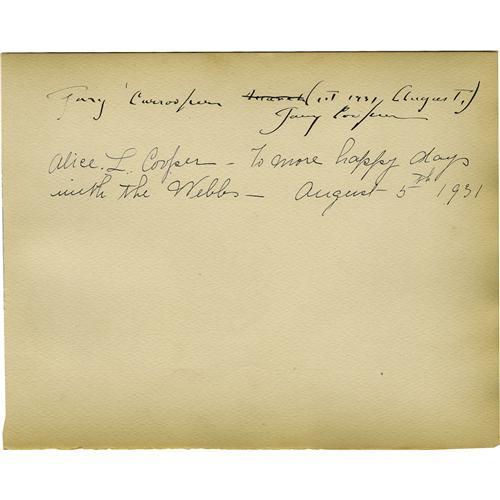 Gary Currooper March (1st 1931, August,)
Gary Cooper
Alice L. Cooper - To more happy days
with the Webbs - August 5th 1931